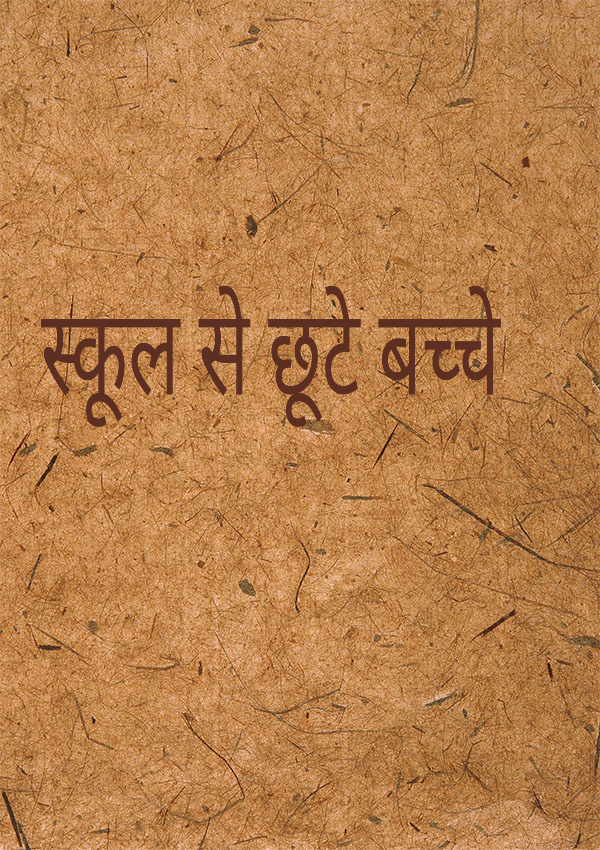 स्कूल से छूटे बच्चे